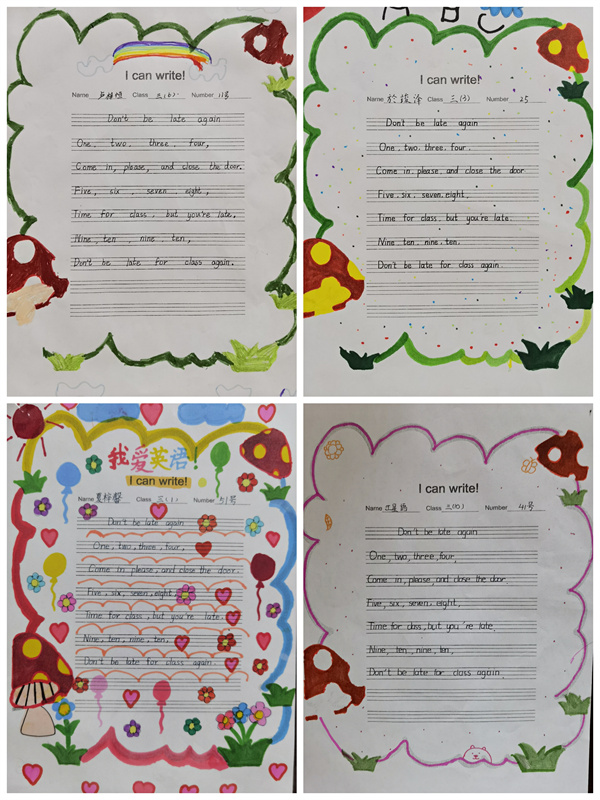 I can write!
Name Class 三(6) Number 11号
Don't be late again
One. two. three. four,
Come in, please, and close the door.
Five, six. seven. eight,
Time for class. but you're late,
Nine, ten. nine. ten,
Don't be late for class again.
A B C
I can write!
Name Class 三(3) Number 25
Don't be late again
One. two. three. four.
Come in. please. and close the door
Five. six. seven. eight,
Time for class. but you're late.
Nine. ten. nine. ten.
Don't be late for class again.
我爱英语!
I can write!
Name Class 三(1) Number 51号
Don't be late again
One, two, three, four,
Come in please, and close the door.
Five, six, seven, eight,
Time for class, but you're late.
Nine, ten, nine, ten,
Don't be late for class again.
I can write!
Name Class Number 41号
Don't be late again
One, two, three, four,
Come in, please, and close the door.
Five, six, seven, eight,
Time for class, but you're late.
Nine, ten, nine, ten,
Don't be late for class again.